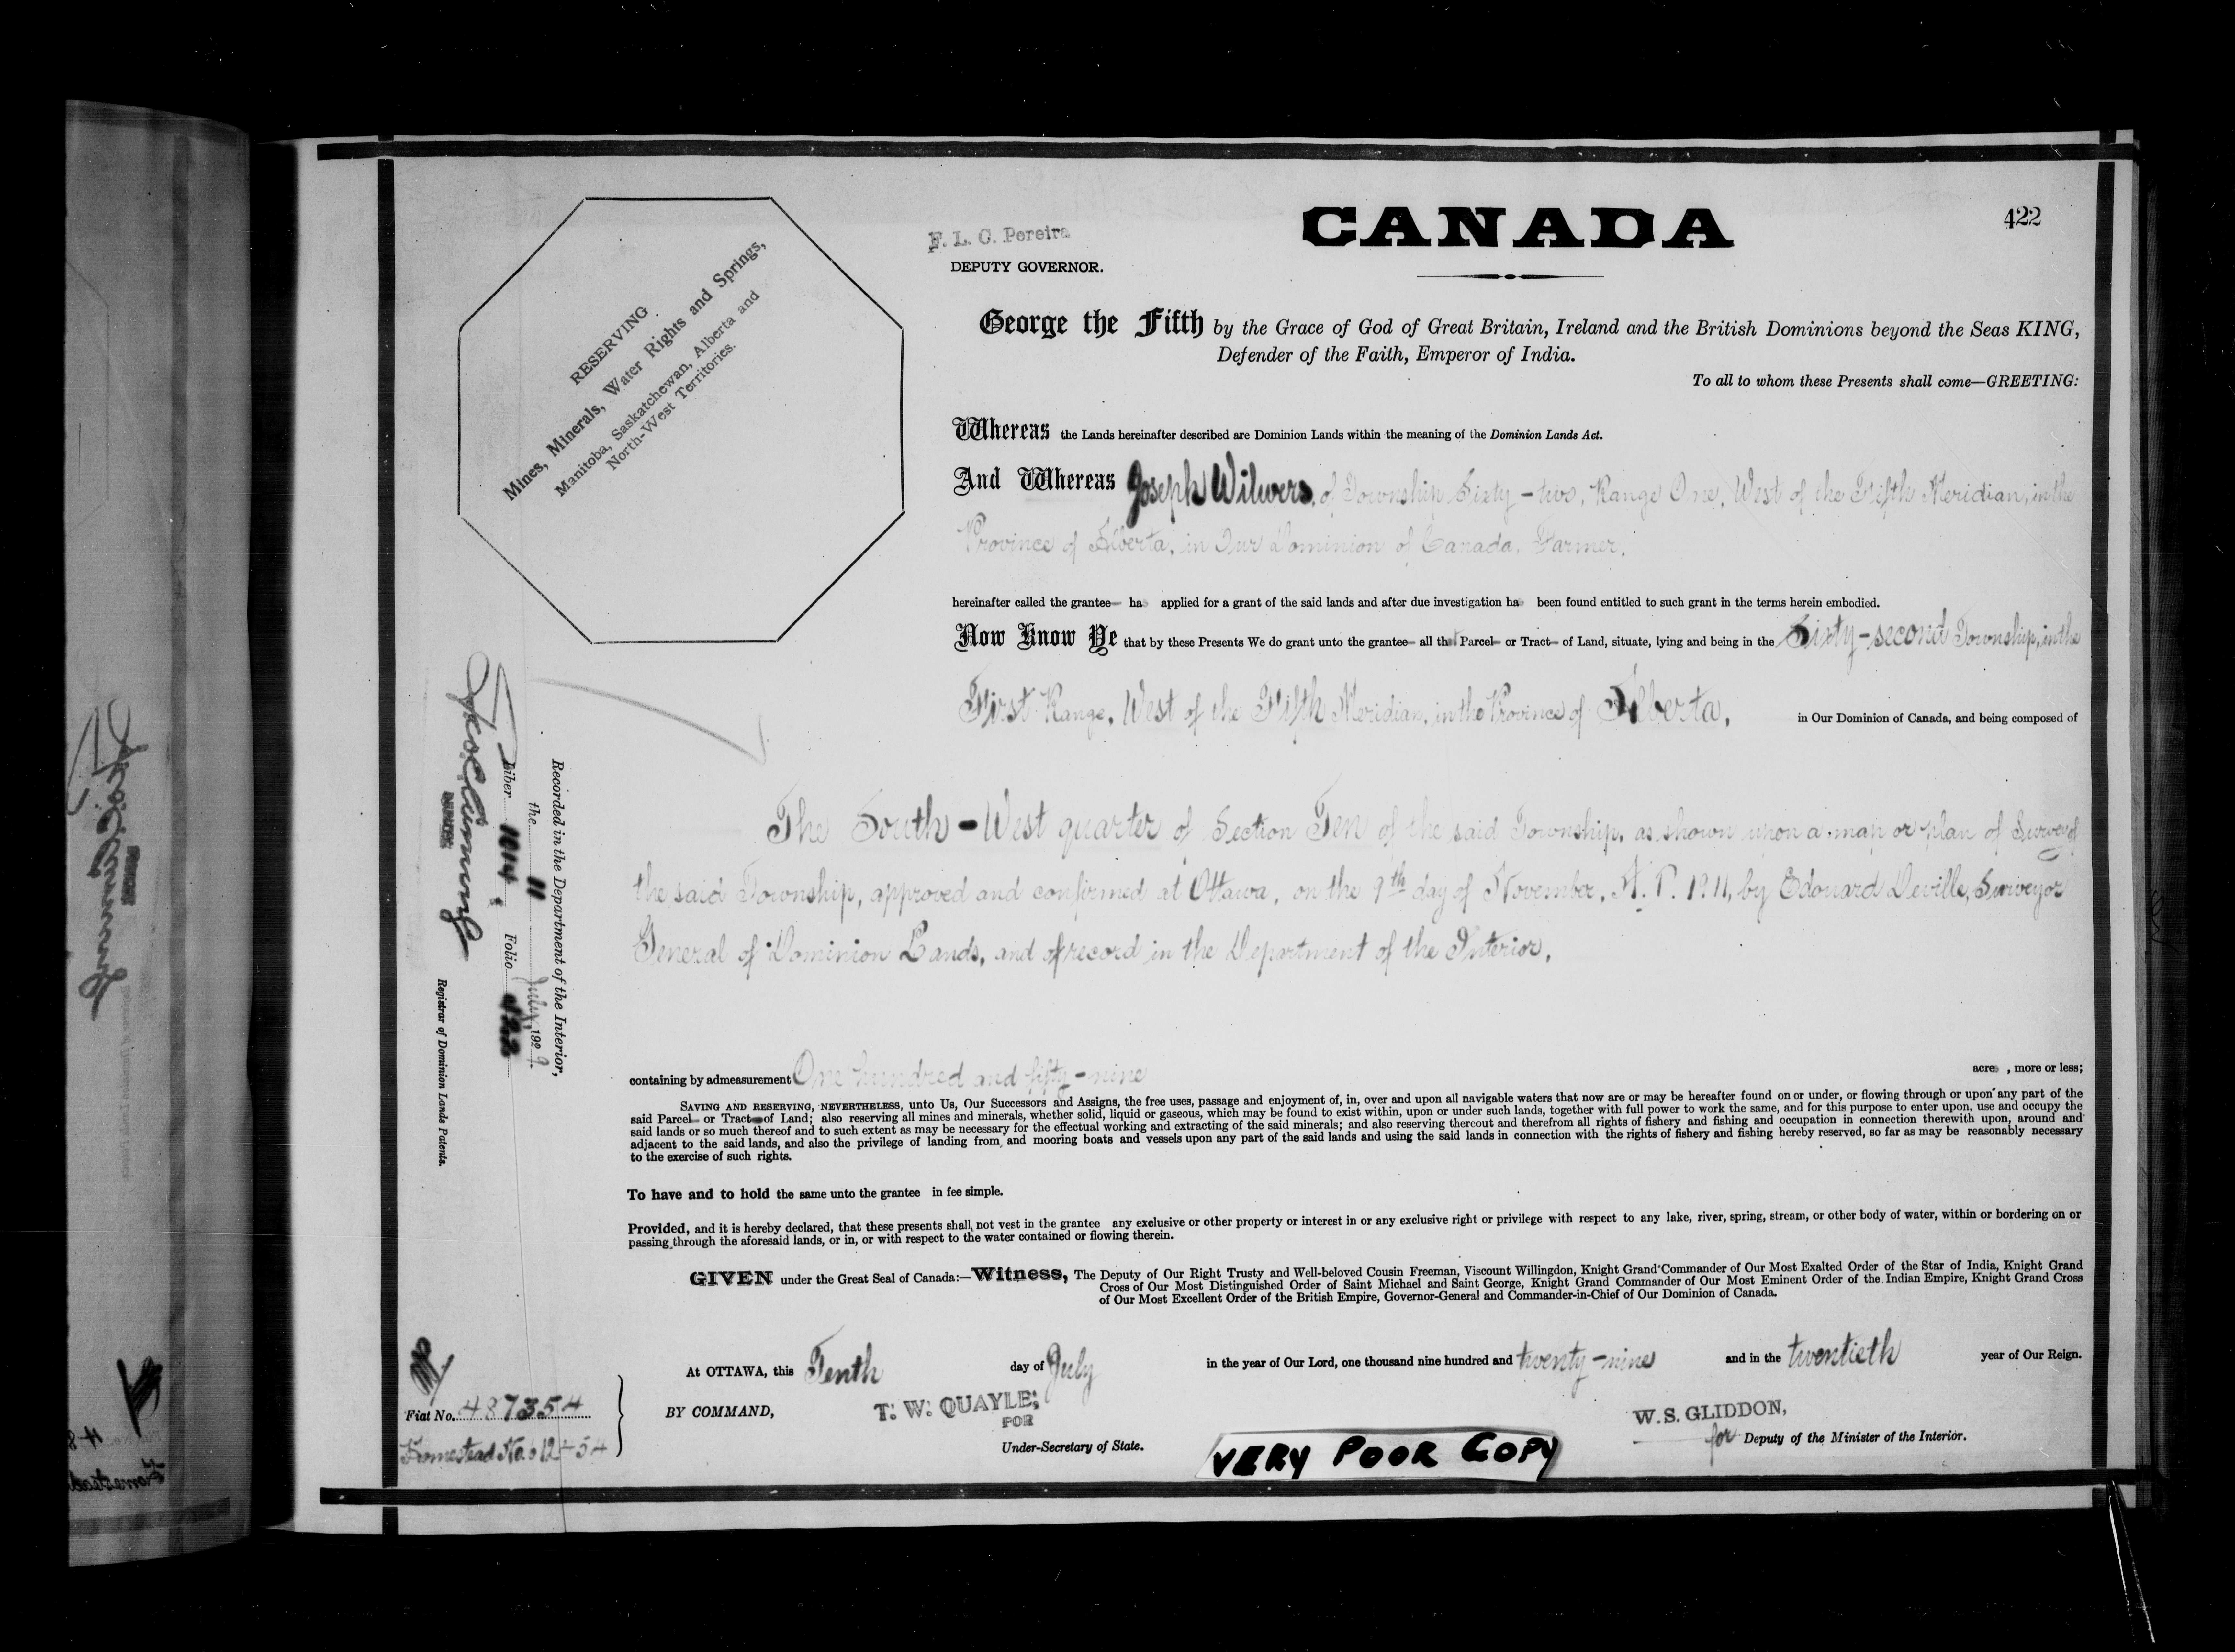 CANADA
422
F. L. C. Pereira
DEPUTY GOVERNOR.
RESERVING
Mines, Minerals, Water Rights and Springs,
Manitoba, Saskatchewan, Alberta and
North-West Territories.
George the Fifth by the Grace of God of Great Britain, Ireland and the British Dominions beyond the Seas KING,
Defender of the Faith, Emperor of India.
To all to whom these Presents shall come—GREETING:
Whereas the Lands hereinafter described are Dominion Lands within the meaning of the Dominion Lands Act.
And Whereas Joseph Wilwers, of Township Sixty-two, Range One, West of the Fifth Meridian, in the
Province of Alberta, in Our Dominion of Canada, Farmer,
hereinafter called the grantee ha applied for a grant of the said lands and after due investigation ha been found entitled to such grant in the terms herein embodied.
Now Know Ye that by these Presents We do grant unto the grantee all that Parcel or Tract of Land, situate, lying and being in the Sixty-second Township, in the
First Range, West of the Fifth Meridian, in the Province of Alberta, in Our Dominion of Canada, and being composed of
The South-West quarter of Section Ten of the said Township, as shown upon a map or plan of Survey of
the said Township, approved and confirmed at Ottawa, on the 9th day of November, A.D. 1911, by Edouard Deville, Surveyor
General of Dominion Lands, and of record in the Department of the Interior.
containing by admeasurement One hundred and fifty-nine acre , more or less;
SAVING AND RESERVING, NEVERTHELESS, unto Us, Our Successors and Assigns, the free uses, passage and enjoyment of, in, over and upon all navigable waters that now are or may be hereafter found on or under, or flowing through or upon any part of the
said Parcel or Tract of Land; also reserving all mines and minerals, whether solid, liquid or gaseous, which may be found to exist within, upon or under such lands, together with full power to work the same, and for this purpose to enter upon, use and occupy the
said lands or so much thereof and to such extent as may be necessary for the effectual working and extracting of the said minerals; and also reserving thereout and therefrom all rights of fishery and fishing and occupation in connection therewith upon, around and
adjacent to the said lands, and also the privilege of landing from and mooring boats and vessels upon any part of the said lands and using the said lands in connection with the rights of fishery and fishing hereby reserved, so far as may be reasonably necessary
to the exercise of such rights.
To have and to hold the same unto the grantee in fee simple.
Provided, and it is hereby declared, that these presents shall not vest in the grantee any exclusive or other property or interest in or any exclusive right or privilege with respect to any lake, river, spring, stream, or other body of water, within or bordering on or
passing through the aforesaid lands, or in, or with respect to the water contained or flowing therein.
GIVEN under the Great Seal of Canada:—Witness, The Deputy of Our Right Trusty and Well-beloved Cousin Freeman, Viscount Willingdon, Knight Grand Commander of Our Most Exalted Order of the Star of India, Knight Grand
Cross of Our Most Distinguished Order of Saint Michael and Saint George, Knight Grand Commander of Our Most Eminent Order of the Indian Empire, Knight Grand Cross
of Our Most Excellent Order of the British Empire, Governor-General and Commander-in-Chief of Our Dominion of Canada.
At OTTAWA, this Tenth day of July in the year of Our Lord, one thousand nine hundred and twenty-nine and in the twentieth year of Our Reign.
BY COMMAND,
T. W. QUAYLE,
FOR
Under-Secretary of State.
W. S. GLIDDON,
for Deputy of the Minister of the Interior.
VERY POOR COPY
Fiat No. 487354
Homestead No.
Recorded in the Department of the Interior,
the 11 July, 1929.
Liber 1014 Folio 422
DEPUTY
Registrar of Dominion Lands Patents.